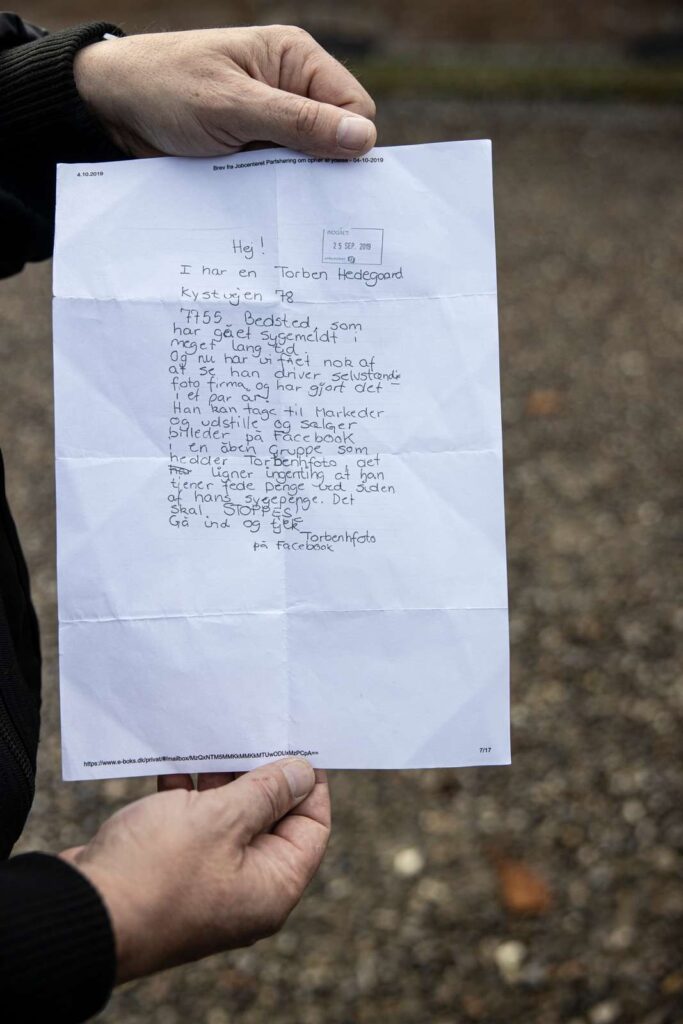 4.10.2019
Brev fra Jobcenteret Partshøring om ophør af ydelse - 04-10-2019
INDGÅET
25 SEP. 2019
Hej!
I har en Torben Hedegaard
Kystvejen 78
7755 Bedsted, som
har gået sygemeldt i
meget lang tid.
Og nu har vi fået nok af
at se han driver selvstændi-
foto firma, og har gjort det
i et par år!
Han kan tage til Markeder
og udstille og sælger
billeder på Facebook
i en åben gruppe som
hedder Torbenhfoto det
ligner ingenting at han
tjener fede penge ved siden
af hans sygepenge. Det
skal. STOPPES!
Gå ind og tjek
Torbenhfoto
på Facebook
7/17